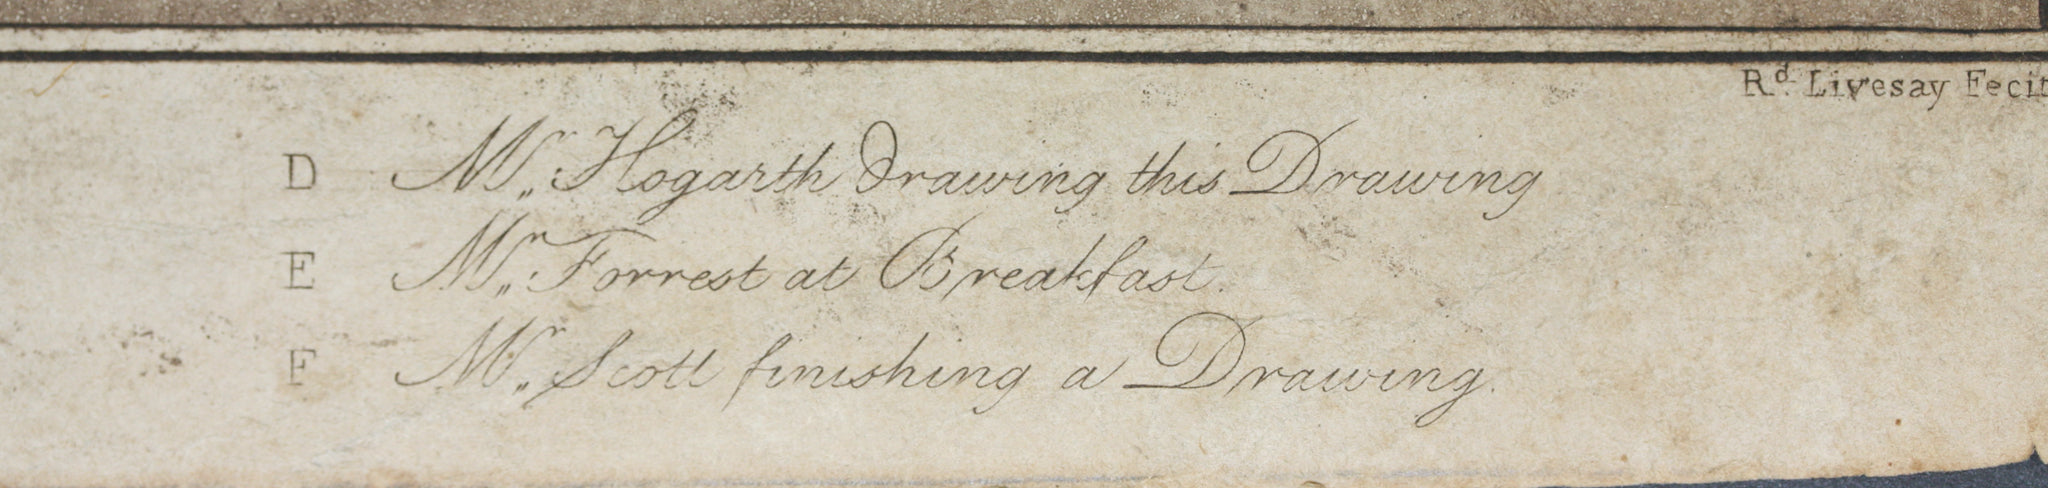 Rd. Livesay Fecit
D Mr. Hogarth drawing this Drawing
E Mr. Forrest at Breakfast.
F Mr. Scott finishing a Drawing.